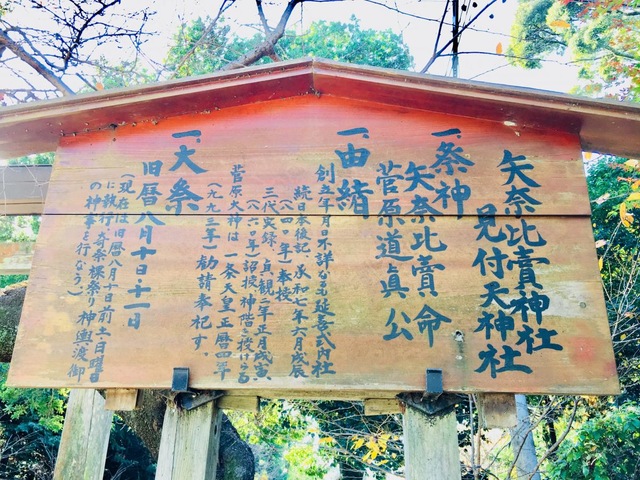 矢奈比賣神社
見付天神社
一、祭神
矢奈比賣命
菅原道眞公
一、由緒
創立年月不詳なるも延喜式内社
続日本後記、承和七年六月戊辰
(八四〇年)奉授
三代実録、貞観二年正月戊寅
(八六〇年)詔授神階を授けらる
菅原大神は一条天皇正暦四年
(九九三年)勧請奉祀す。
一、大祭
旧暦八月十日・十一日
(現在は旧暦八月十日前土日曜日
に執行 奇祭裸祭り 神輿渡御
の神事を行なう)